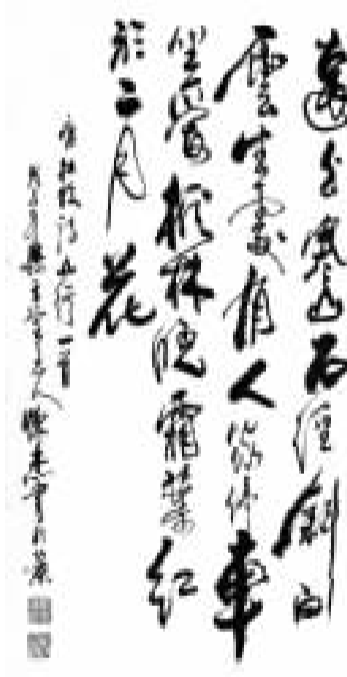 遠上寒山石徑斜白
雲生處有人家停車
坐愛楓林晚霜葉紅
於二月花
唐杜牧詩山行一首